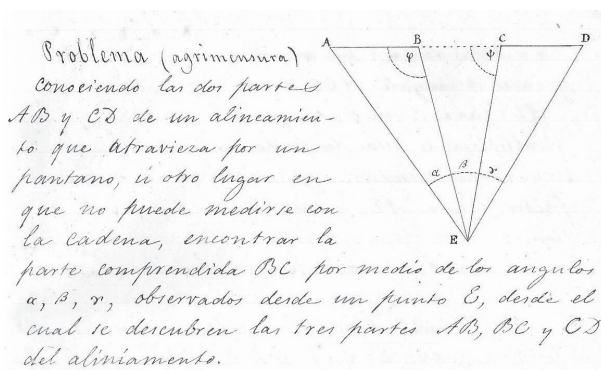 A B C D
φ ψ
Problema (agrimensura)
Conociendo las dos partes
AB y CD de un alineamien-
to que atravieza por un
pantano, ú otro lugar en
que no puede medirse con
la cadena, encontrar la
α β γ
E
parte comprendida BC por medio de los angulos
α, β, γ, observados desde un punto E, desde el
cual se descubren las tres partes AB, BC y CD
del aliniamento.